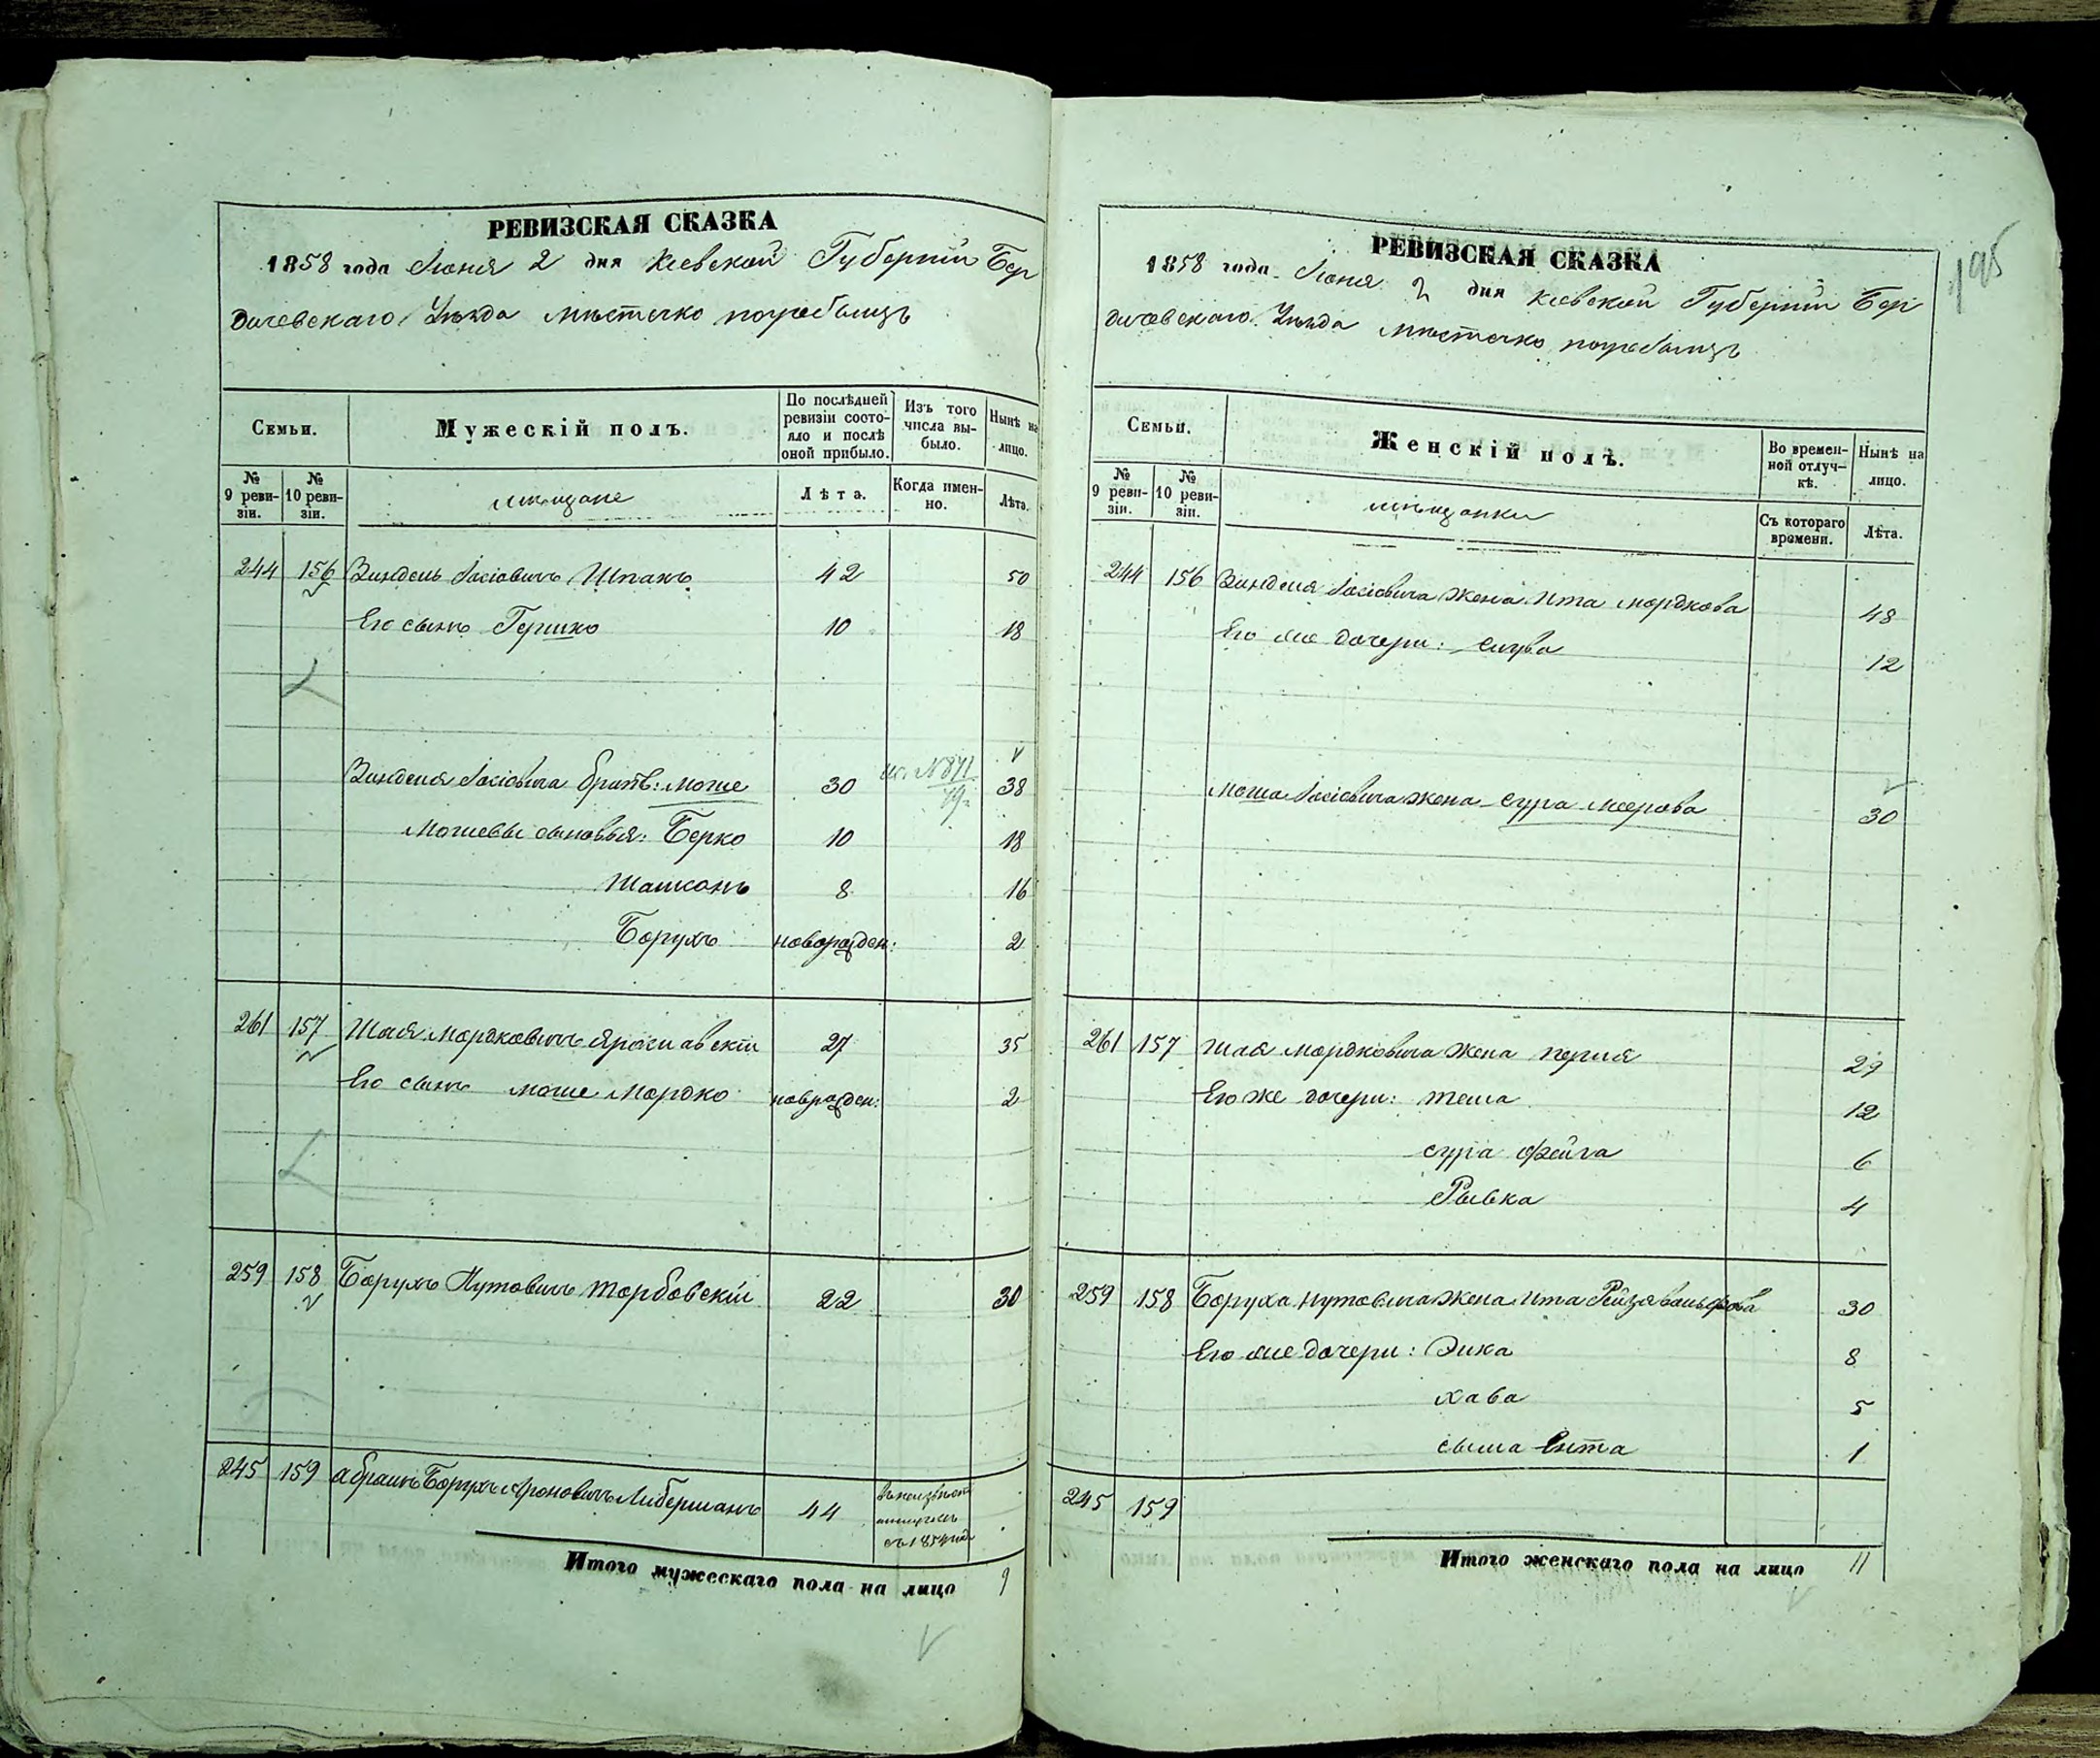 РЕВИЗСКАЯ СКАЗКА
1858 года Іюня 2 дня Кіевской Губерніи Бер
дичевскаго Уѣзда мѣстечко погребыщъ
Семьи.
Мужескій полъ.
По послѣдней ревизіи состояло и послѣ оной прибыло.
Изъ того числа выбыло.
Нынѣ на лицо.
№ 9 ревизіи.
№ 10 ревизіи.
мѣщане
Лѣта.
Когда именно.
Лѣта.
244 156 Зиндель Іосіовичъ Шпакъ 42 50
Его сынъ Гершко 10 18
Зинделя Іосіовича братъ: Моше 30 38
Мошевы сыновья: Берко 10 18
8 16
Борухъ новорожден: 2
261 157 Шая Мордковичъ Ярославскій 27 35
Его сынъ Моше Мордко новрожден: 2
259 158 Борухъ Нутовичъ Торбовскій 22 30
245 159 Абрамъ Борухъ Ароновичъ Либерманъ 44
съ 1854 года
Итого мужескаго пола на лицо 9
195
РЕВИЗСКАЯ СКАЗКА
1858 года Іюня 2 дня Кіевской Губерніи Бер
дичевскаго Уѣзда мѣстечко погребыщъ
Семьи.
Женскій полъ.
Во временной отлучкѣ.
Нынѣ на лицо.
№ 9 ревизіи.
№ 10 ревизіи.
мѣщанки
Съ котораго времени.
Лѣта.
244 156 Зинделя Іосіовича жена Ита Мордкова 48
Его же дочери: 12
Моша Іосіовича жена Сура Меерова 30
261 157 Шая Мордковича жена Перля 29
Его же дочери: 12
Сура Фейга 6
Рывка 4
259 158 Боруха Нутовича жена Ита Рейзя Вольфова 30
Его же дочери: 8
Хава 5
Сыма Ента 1
245 159
Итого женскаго пола на лицо 11